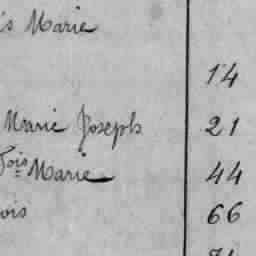 is Marie
14
Marie Joseph 21
fois Marie 44
ois 66